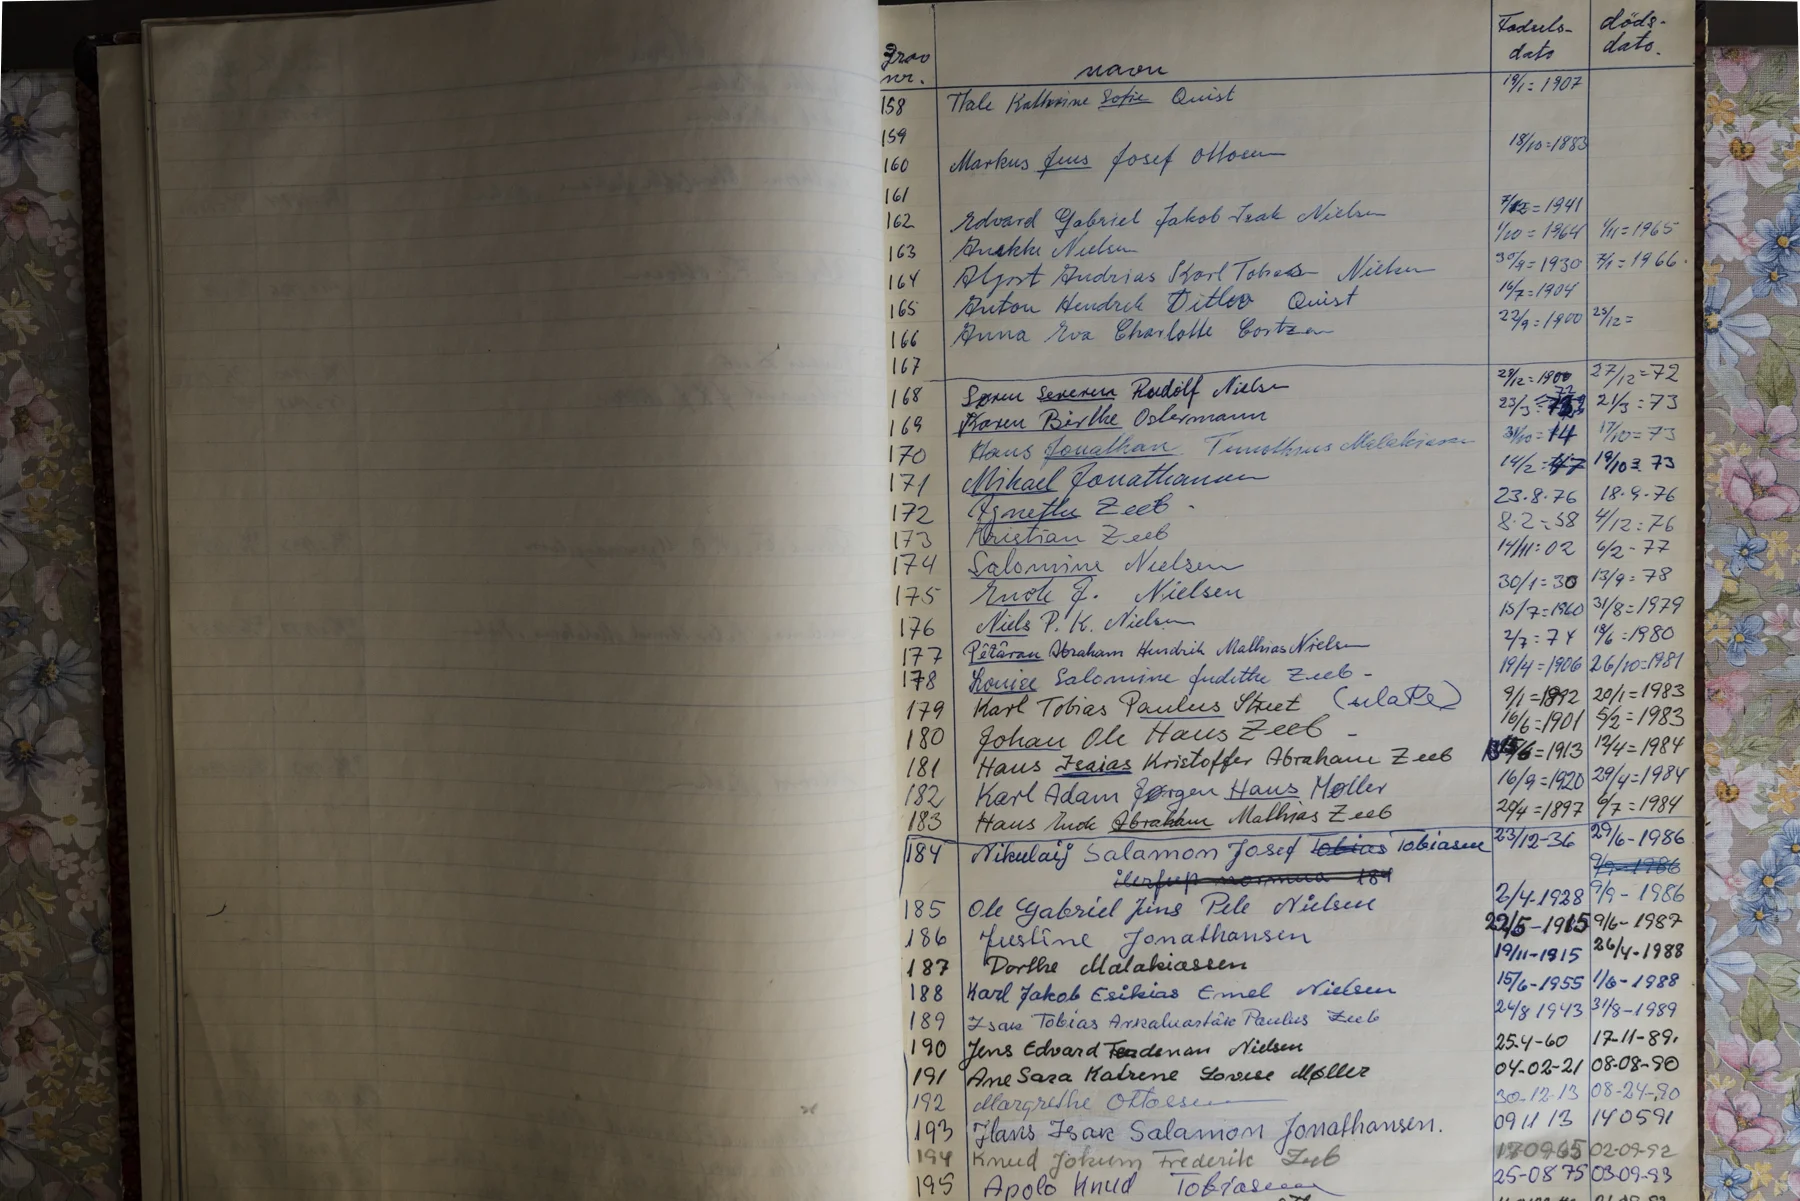 Grav nr. navn Fødsels-dato døds-dato.
158 Thale Kathrine Sofie Quist 19/1=1907
159
160 Markus Jens Josef Ottosen 18/10=1883
161
162 Edvard Gabriel Jakob Isak Nielsen =1941
163 Nielsen 1/10=1964 1/11=1965
164 Andrias Karl Tobias Nielsen 30/9=1930 7/1=1966.
165 Anton Hendrik Ditlev Quist 16/7=1904
166 Anna Eva Charlotte Cortzen 22/9=1900 23/12=
167
168 Søren Severin Rudolf Nielsen 29/12=1900 27/12=72
169 Karen Birthe Ostermann 23/3= 21/3=73
170 Hans Jonathan Timotheus Malakiassen 31/10=14 17/10=73
171 Mikael Jonathansen 14/2= 19/10=73
172 Agnethe Zeeb - 23.8.76 18.9.76
173 Kristian Zeeb 8.2=58 4/12=76
174 Salomine Nielsen 14/11=02 6/2-77
175 Enok J. Nielsen 30/1=30 13/9=78
176 Niels P. K. Nielsen 15/7=1960 31/8=1979
177 Pêtãrau Abraham Hendrik Mathias Nielsen 2/7=74 =1980
178 Louise Salomine Judithe Zeeb - 19/4=1906 26/10=1981
179 Karl Tobias Paulus Street 9/1=1892 20/1=1983
180 Johan Ole Hans Zeeb - 16/6=1901 5/2=1983
181 Hans Isaias Kristoffer Abraham Zeeb =1913 12/4=1984
182 Karl Adam Jørgen Hans Møller 16/9=1920 29/4=1984
183 Hans Enok Abraham Mathias Zeeb =1897 =1984
184 Nikulaij Salamon Josef Tobias Tobiasen 23/12-36 29/6-1986
ilerfup normua 184 9/9-1986
185 Ole Gabriel Jens Pele Nielsen 2/4-1928 9/9-1986
186 Justine Jonathansen 22/5-1915 9/6-1987
187 Dorthe Malakiassen 19/11-1915 26/4-1988
188 Karl Jakob Esikias Emel Nielsen 15/6-1955 1/6-1988
189 Isak Tobias Paulus Zeeb 24/8 1943 31/8-1989
190 Jens Edvard Nielsen 25.4-60 17-11-89.
191 Ane Sara Katrene Lovise Møller 04-02-21 08-08-90
192 Margrethe Ottosen 30.12.13 08-24-90
193 Hans Isak Salamon Jonathansen. 09 11 13 14 05 91
194 Knud Jokum Frederik Zeeb 02-09-92
195 Apolo Knud Tobiasen 25-08 75 03-09-93